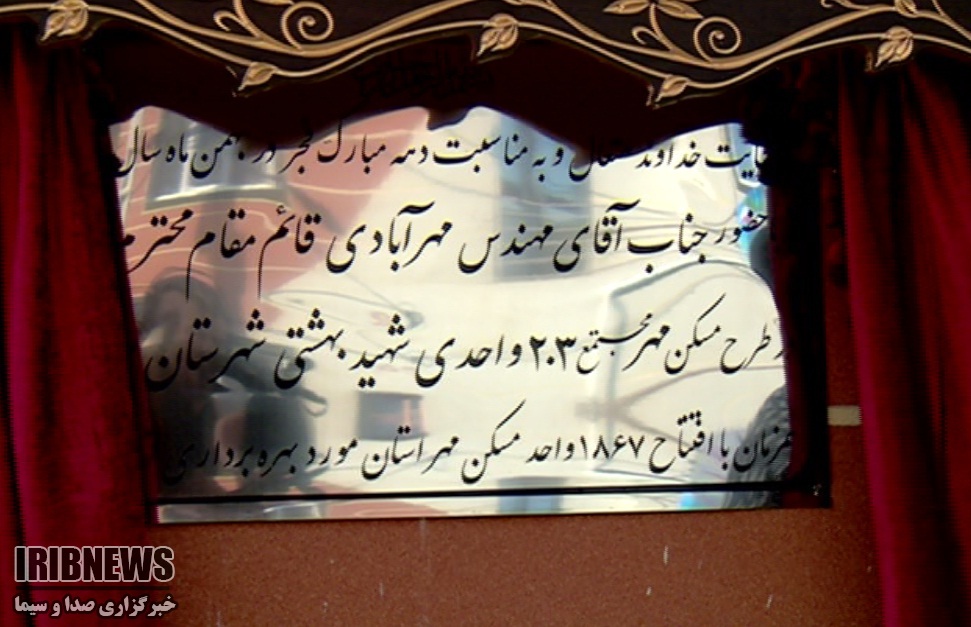 خداوند متعال و به مناسبت دهه مبارک فجر در بهمن ماه سال
حضور جناب آقای مهندس مهرآبادی قائم مقام محترم
طرح مسکن مهر مجتمع ۲۰۳ واحدی شهید بهشتی شهرستان
همزمان با افتتاح ۱۸۶۷ واحد مسکن مهر استان مورد بهره برداری
IRIBNEWS
خبرگزاری صدا و سیما